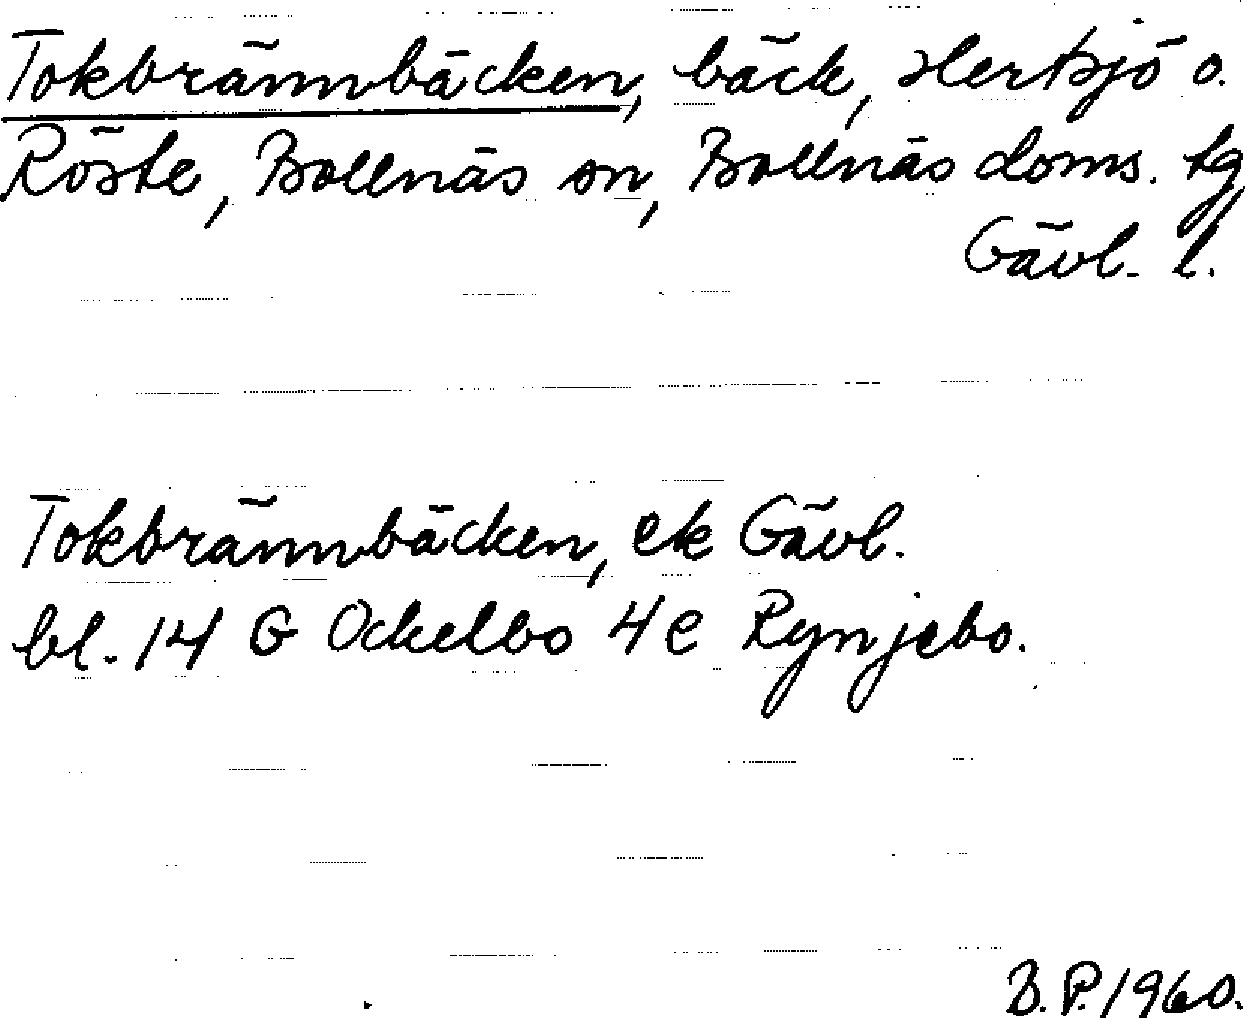 Tokbrännbäcken, bäck, Hertsjö o.
Röste, Bollnäs sn, Bollnäs doms. tg,
Gävl. l.
Tokbrännbäcken, ek Gävl.
bl. 14 G Ockelbo 4 e Rynjebo.
B.P. 1960.